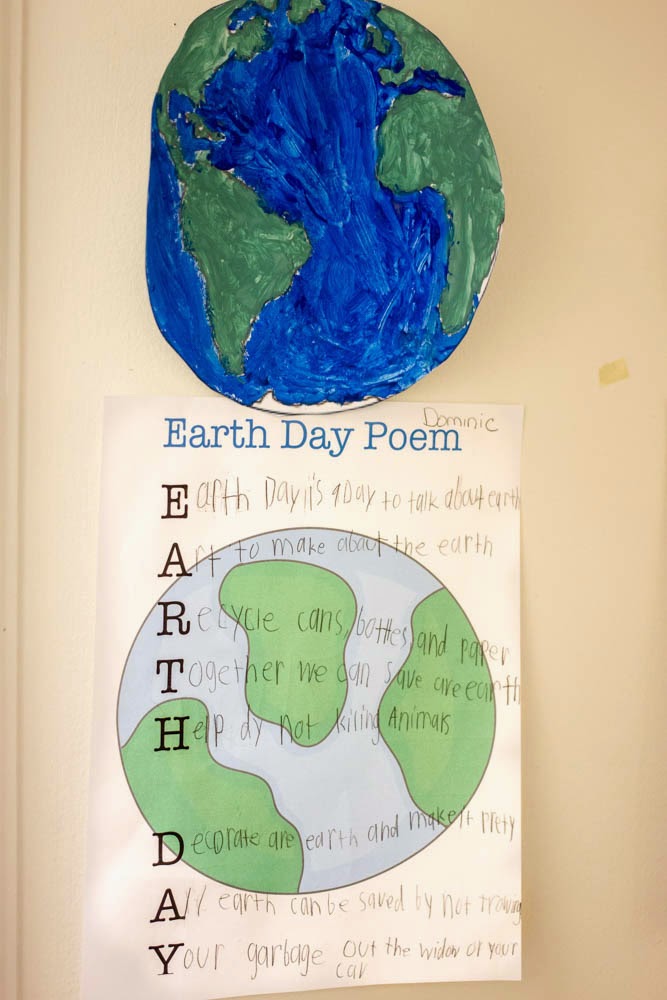 Dominic
Earth Day Poem
Earth Day is a Day to talk about earth
Art to make about the earth
Recycle cans, bottles and paper
Together we can save are earth
Help dy not kiling Animals
Decorate are earth and make it prety
All earth can be saved by not trowing
Your garbage out the widow of your
car